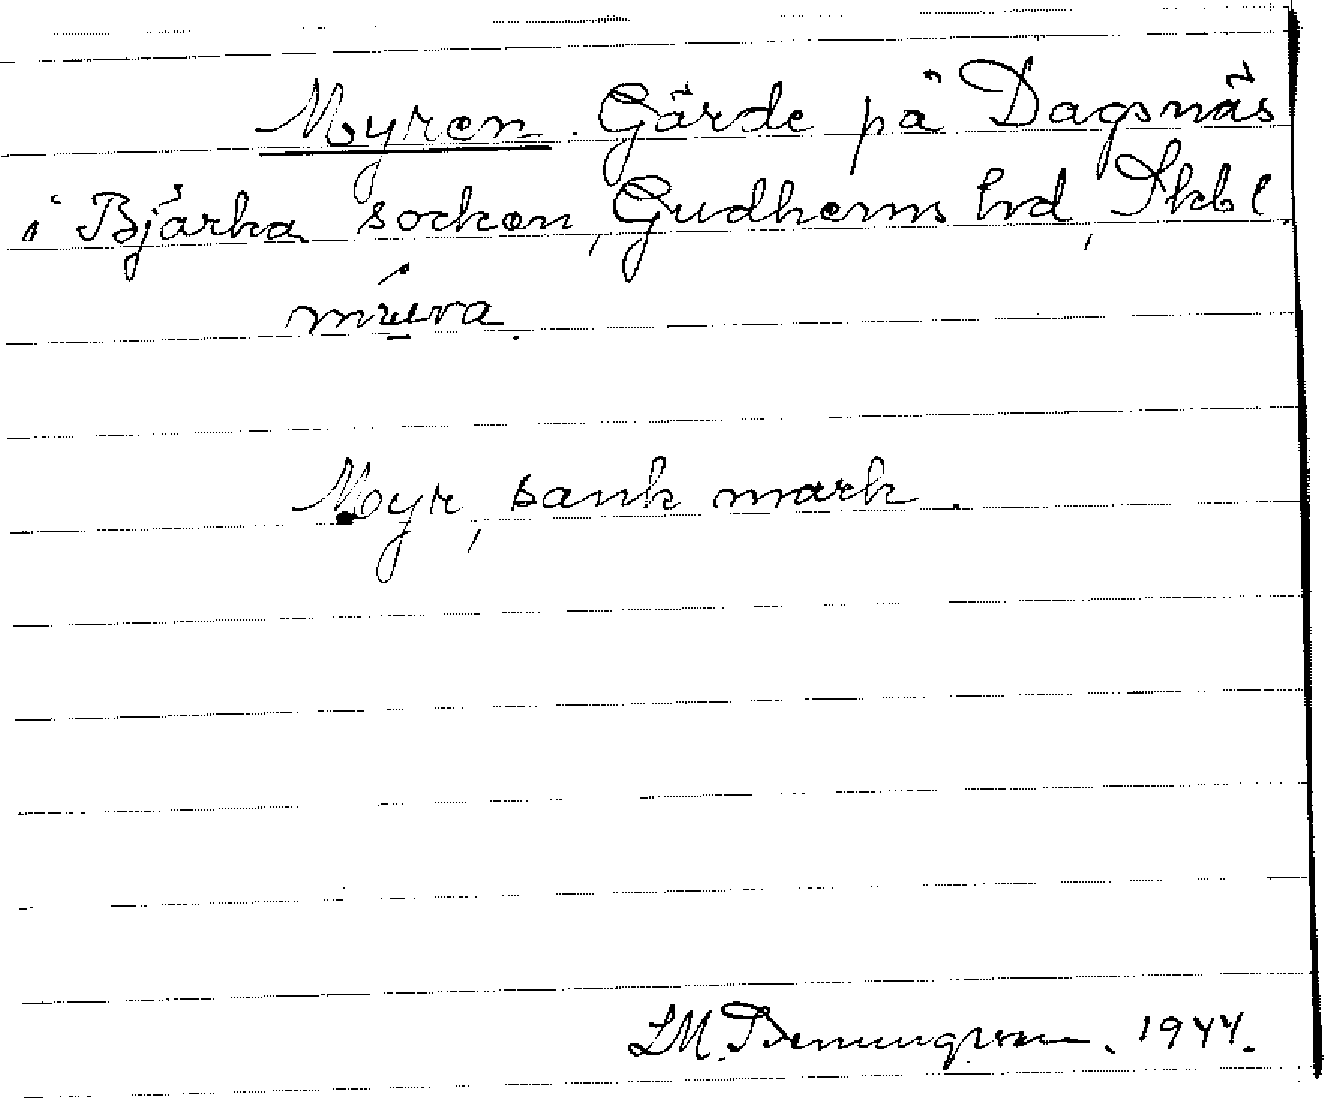 Myren. Gärde på Dagsnäs
i Bjärka socken, Gudhems hrd, Skbl.
Myr, sank mark.
L M. 1944.